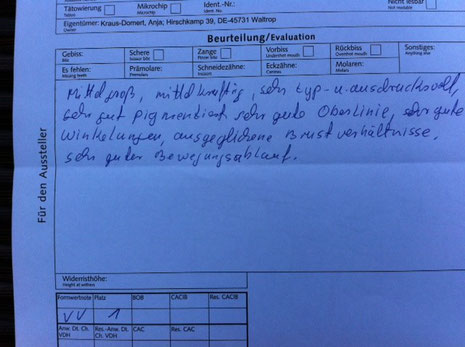 Tätowierung
Tattoo
Mikrochip
Microchip
Ident.-Nr.:
Ident. No.:
Nicht lesbar
Eigentümer: Kraus-Domert, Anja, Hirschkamp 39, DE-45731 Waltrop
Owner
Beurteilung/Evaluation
Gebiss:
Schere
Zange
Vorbiss
Rückbiss
Sonstiges
Es fehlen:
Prämolare:
Schneidezähne:
Eckzähne:
Molaren:
Missing teeth
Premolars
Canines
Molars
Mittelgroß, mittelkräftig, sehr typ-u.ausdrucksvoll,
sehr gut pigmentiert sehr gute Oberlinie, sehr gute
Winkelungen, ausgeglichene Brustverhältnisse.
sehr guter Bewegungsablauf.
Für den Aussteller
Widerristhöhe:
Height at withers
Formwertnote
Platz
BOB
CACIB
Res. CACIB
VV
1
Anw. Dt. Ch.
VDH
Res.-Anw. Dt.
Ch. VDH
CAC
Res. CAC